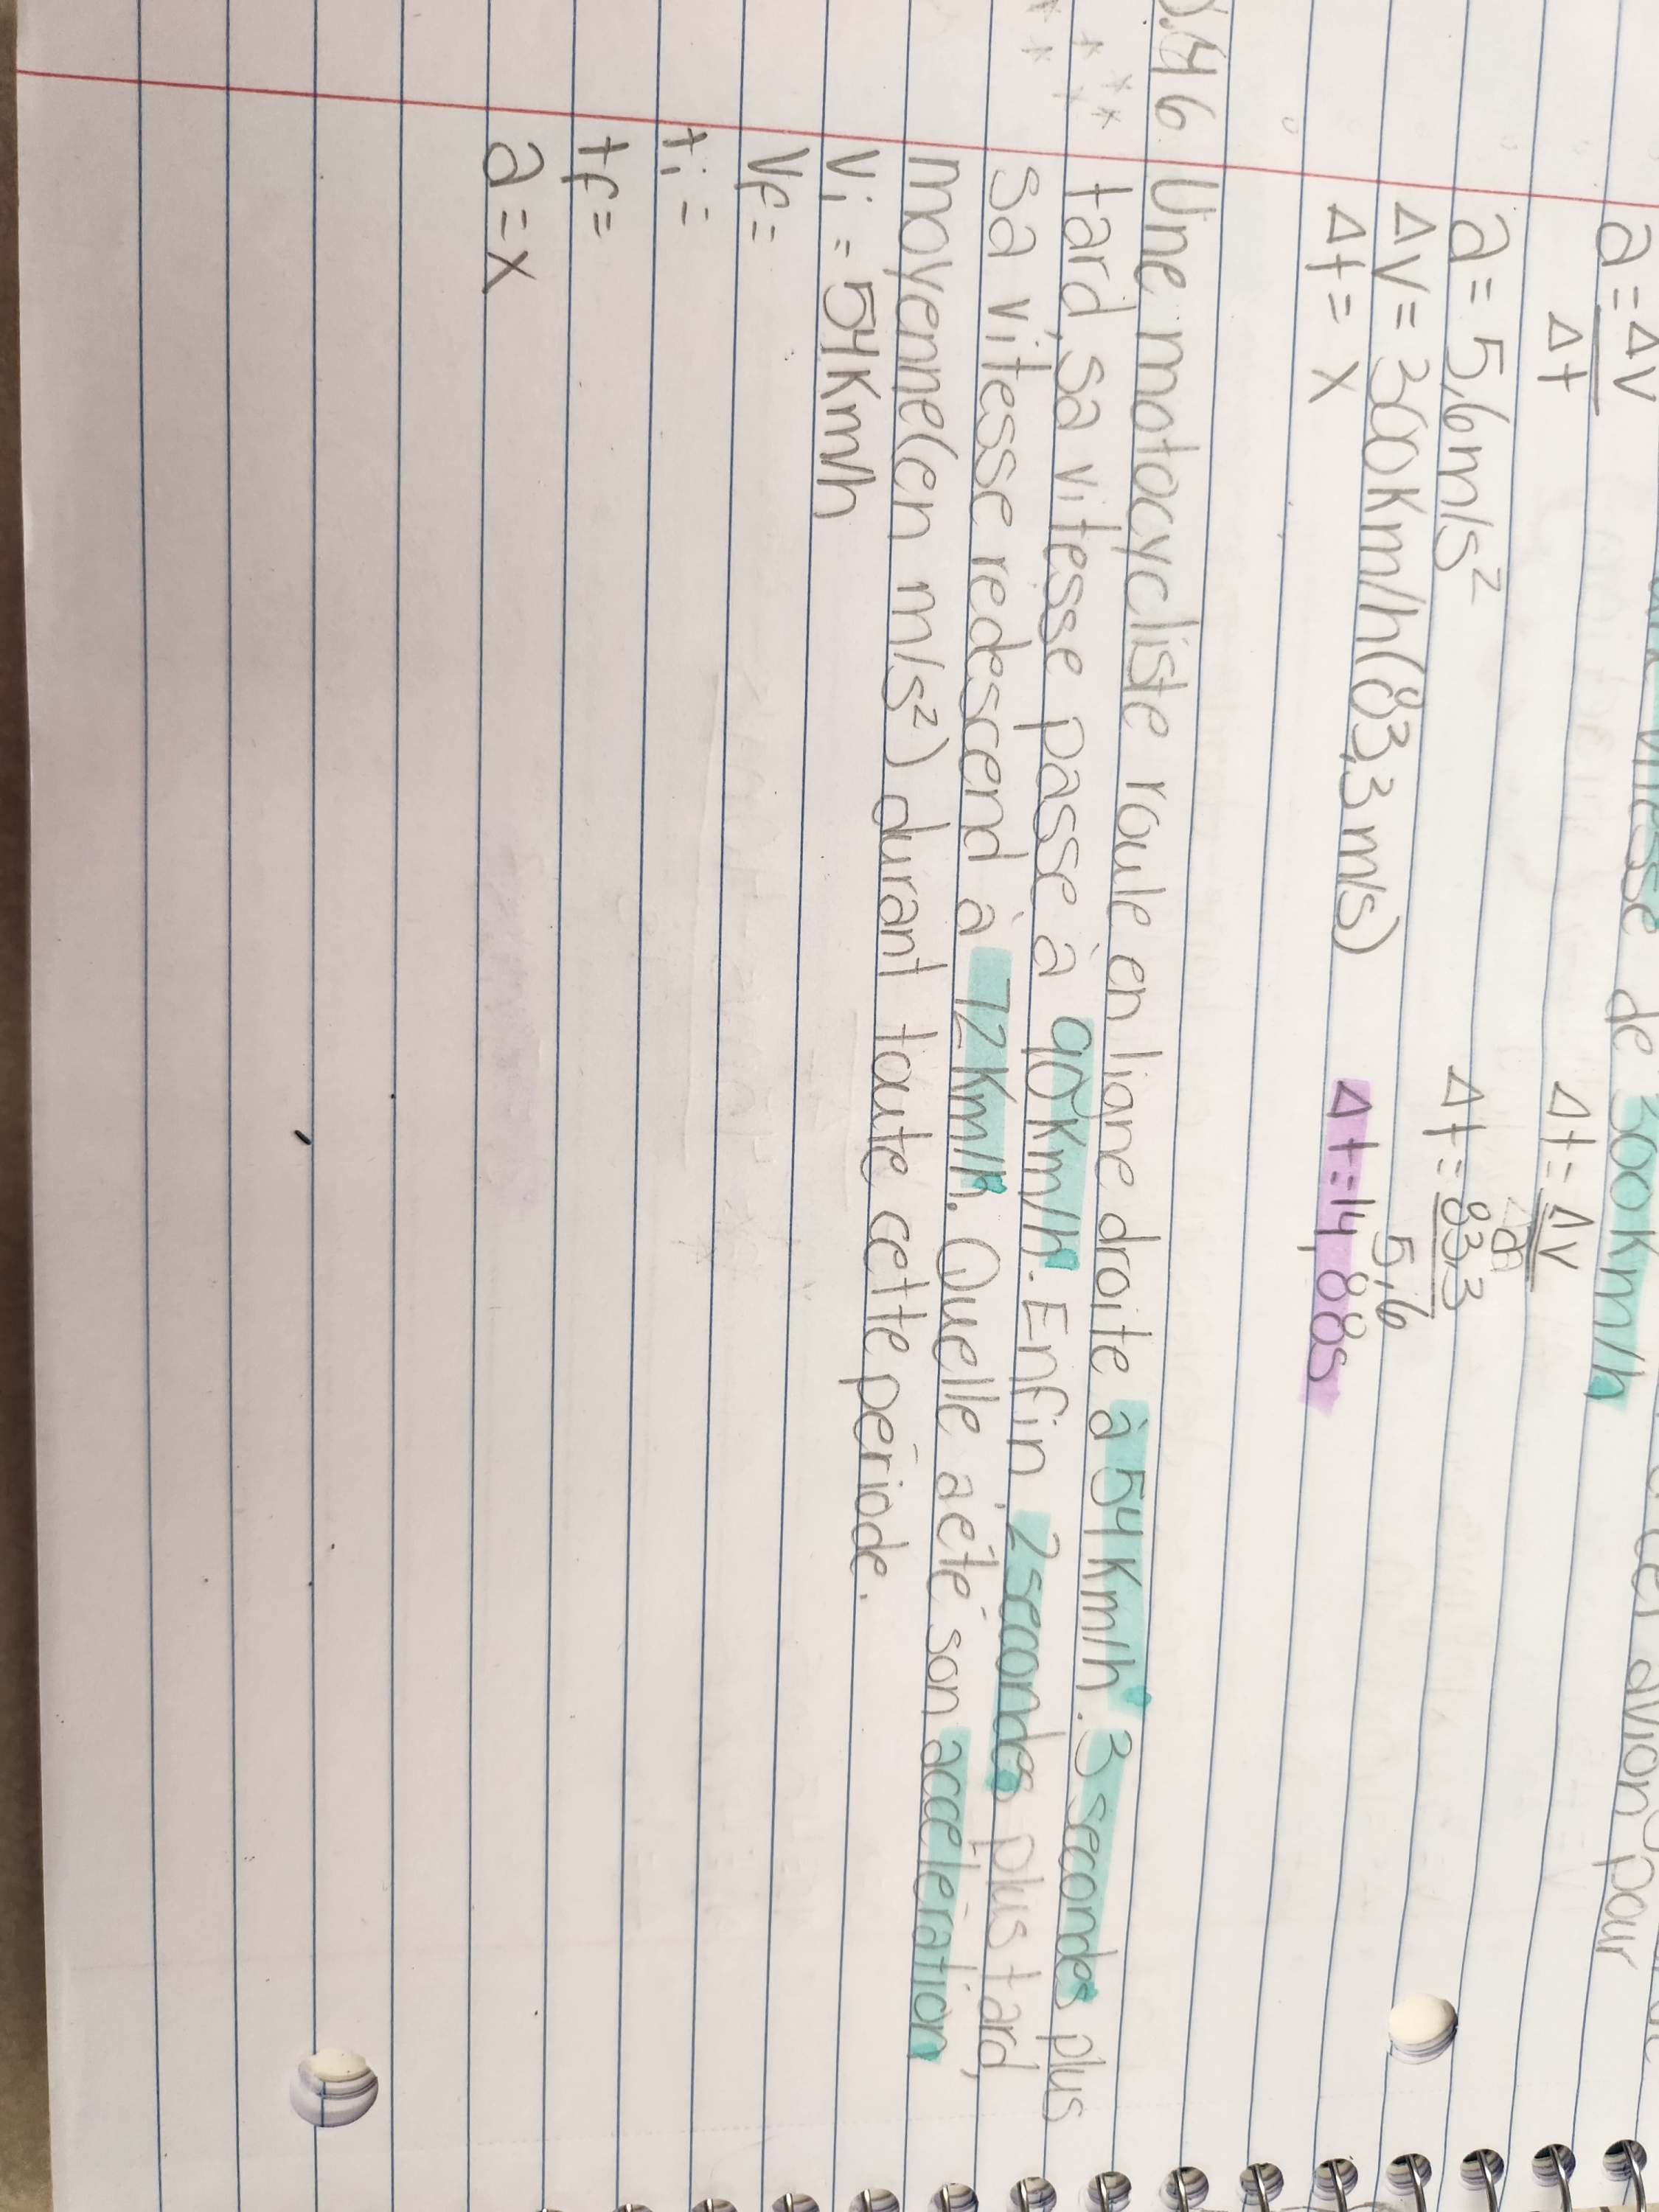 vitesse de 300 Km/h
avion pour
a = Δv
Δt
Δt = Δv
a
a = 5,6m/s²
Δt = 83,3
5,6
Δv = 300Km/h(83,3m/s)
Δt = 14,88s
Δt = x
46 Une motocycliste roule en ligne droite à 54Km/h. 3 secondes plus
tard, sa vitesse passe à 90Km/h. Enfin, 2 secondes plus tard,
sa vitesse redescend à 72Km/h. Quelle a été son accélération
moyenne(en m/s²) durant toute cette période.
vi = 54Km/h
Vf =
ti =
tf =
a = x